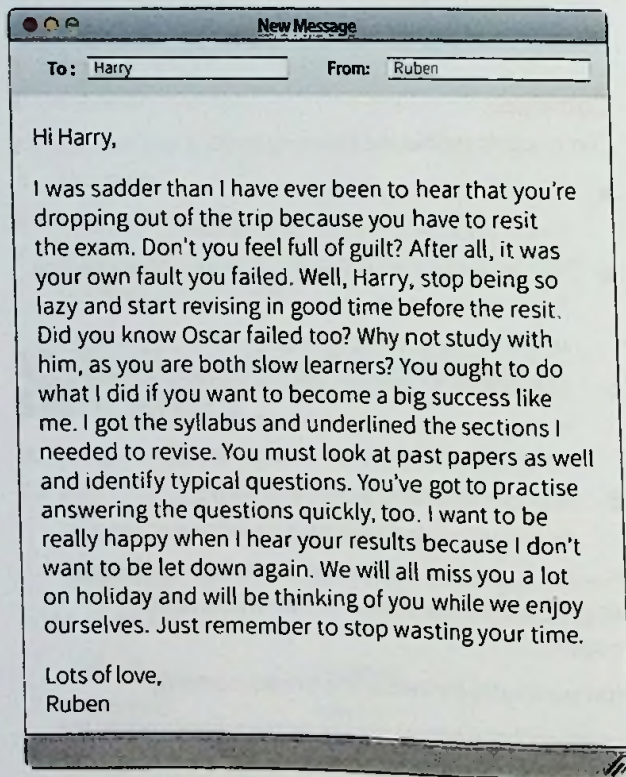 New Message
To: Harry From: Ruben
Hi Harry,
I was sadder than I have ever been to hear that you're
dropping out of the trip because you have to resit
the exam. Don't you feel full of guilt? After all, it was
your own fault you failed. Well, Harry, stop being so
lazy and start revising in good time before the resit.
Did you know Oscar failed too? Why not study with
him, as you are both slow learners? You ought to do
what I did if you want to become a big success like
me. I got the syllabus and underlined the sections I
needed to revise. You must look at past papers as well
and identify typical questions. You've got to practise
answering the questions quickly, too. I want to be
really happy when I hear your results because I don't
want to be let down again. We will all miss you a lot
on holiday and will be thinking of you while we enjoy
ourselves. Just remember to stop wasting your time.
Lots of love,
Ruben